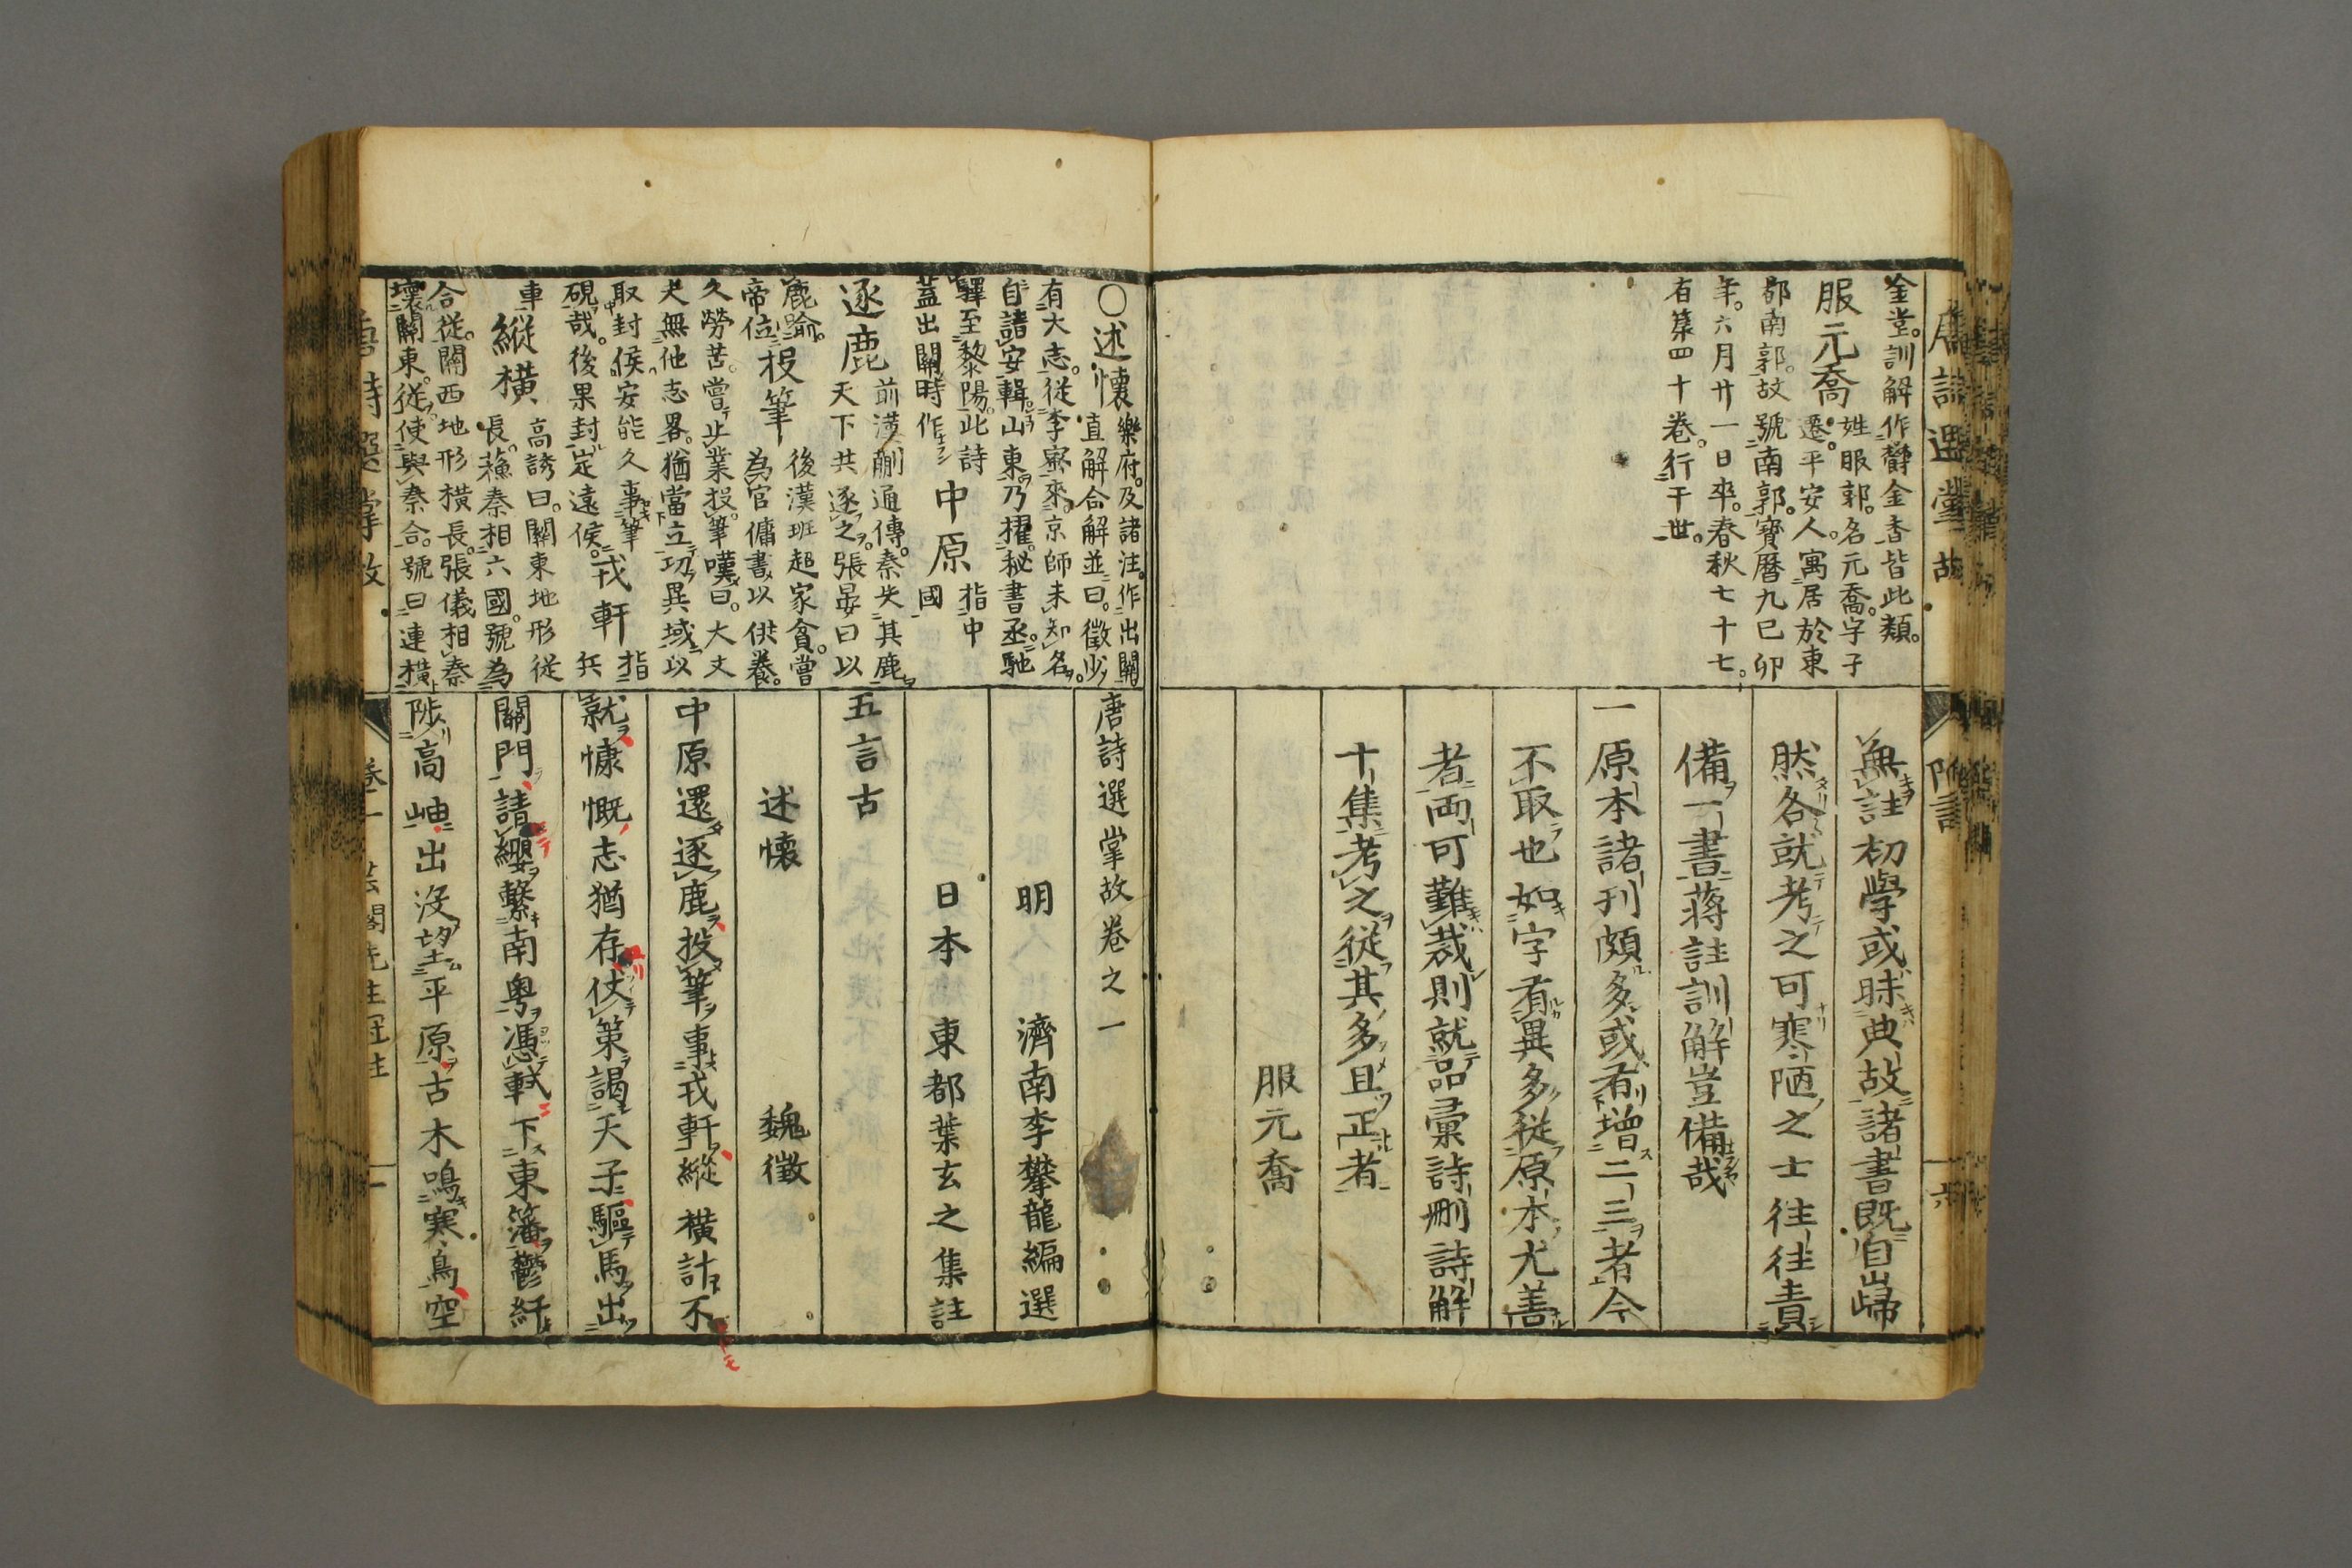 金堂。訓解作欝金杳皆此類。
服元喬
姓服郭。名元喬。字子
遷。平安人。寓居於東
都南郭。故號南郭。寶曆九己卯
年。六月廿一日卒。春秋七十七。
有藁四十卷。行于世。
無註初學或昧典故諸書既自歸
然各就考之可寒陋之士往往責
備一書蔣註訓解豈備哉
一原本諸刊頗多或有增二三者今
不取也如字有異多從原本尤善
者両可難裁則就品彙詩刪詩解
十集考之從其多且正者
服元喬
〇述懷
樂府。及諸注。作出關
直解合解並曰。徵少
有大志。從李密來京師未知名。
自請安輯山東乃擢秘書丞。馳
驛至黎陽。此詩
蓋出關時作
中原
指中
國
逐鹿
前漢蒯通傳。秦失其鹿
天下共逐之。張晏曰以
鹿喻。
帝位
投筆
後漢班超家貧。嘗
為官傭書以供養。
久勞苦。嘗止業投筆嘆曰。大丈
夫無他志畧。猶當立功異域以
取封侯。安能久事筆
硯哉。後果封定遠侯。
戎軒
指
兵
車
縱橫
高誘曰。關東地形從
長。蘓秦相六國。號為
合從。關西地形橫長。張儀相秦
壞關東。從使與秦合。號曰連橫
唐詩選掌故卷之一
明　濟南李攀龍編選
日本　東都葉玄之集註
五言古
述懷　魏徵
中原還逐鹿投筆事戎軒縱橫計不
就慷慨志猶存仗策謁天子驅馬出
關門請纓繫南粤憑軾下東藩鬱紆
陟高岫出没望平原古木鳴寒鳥空